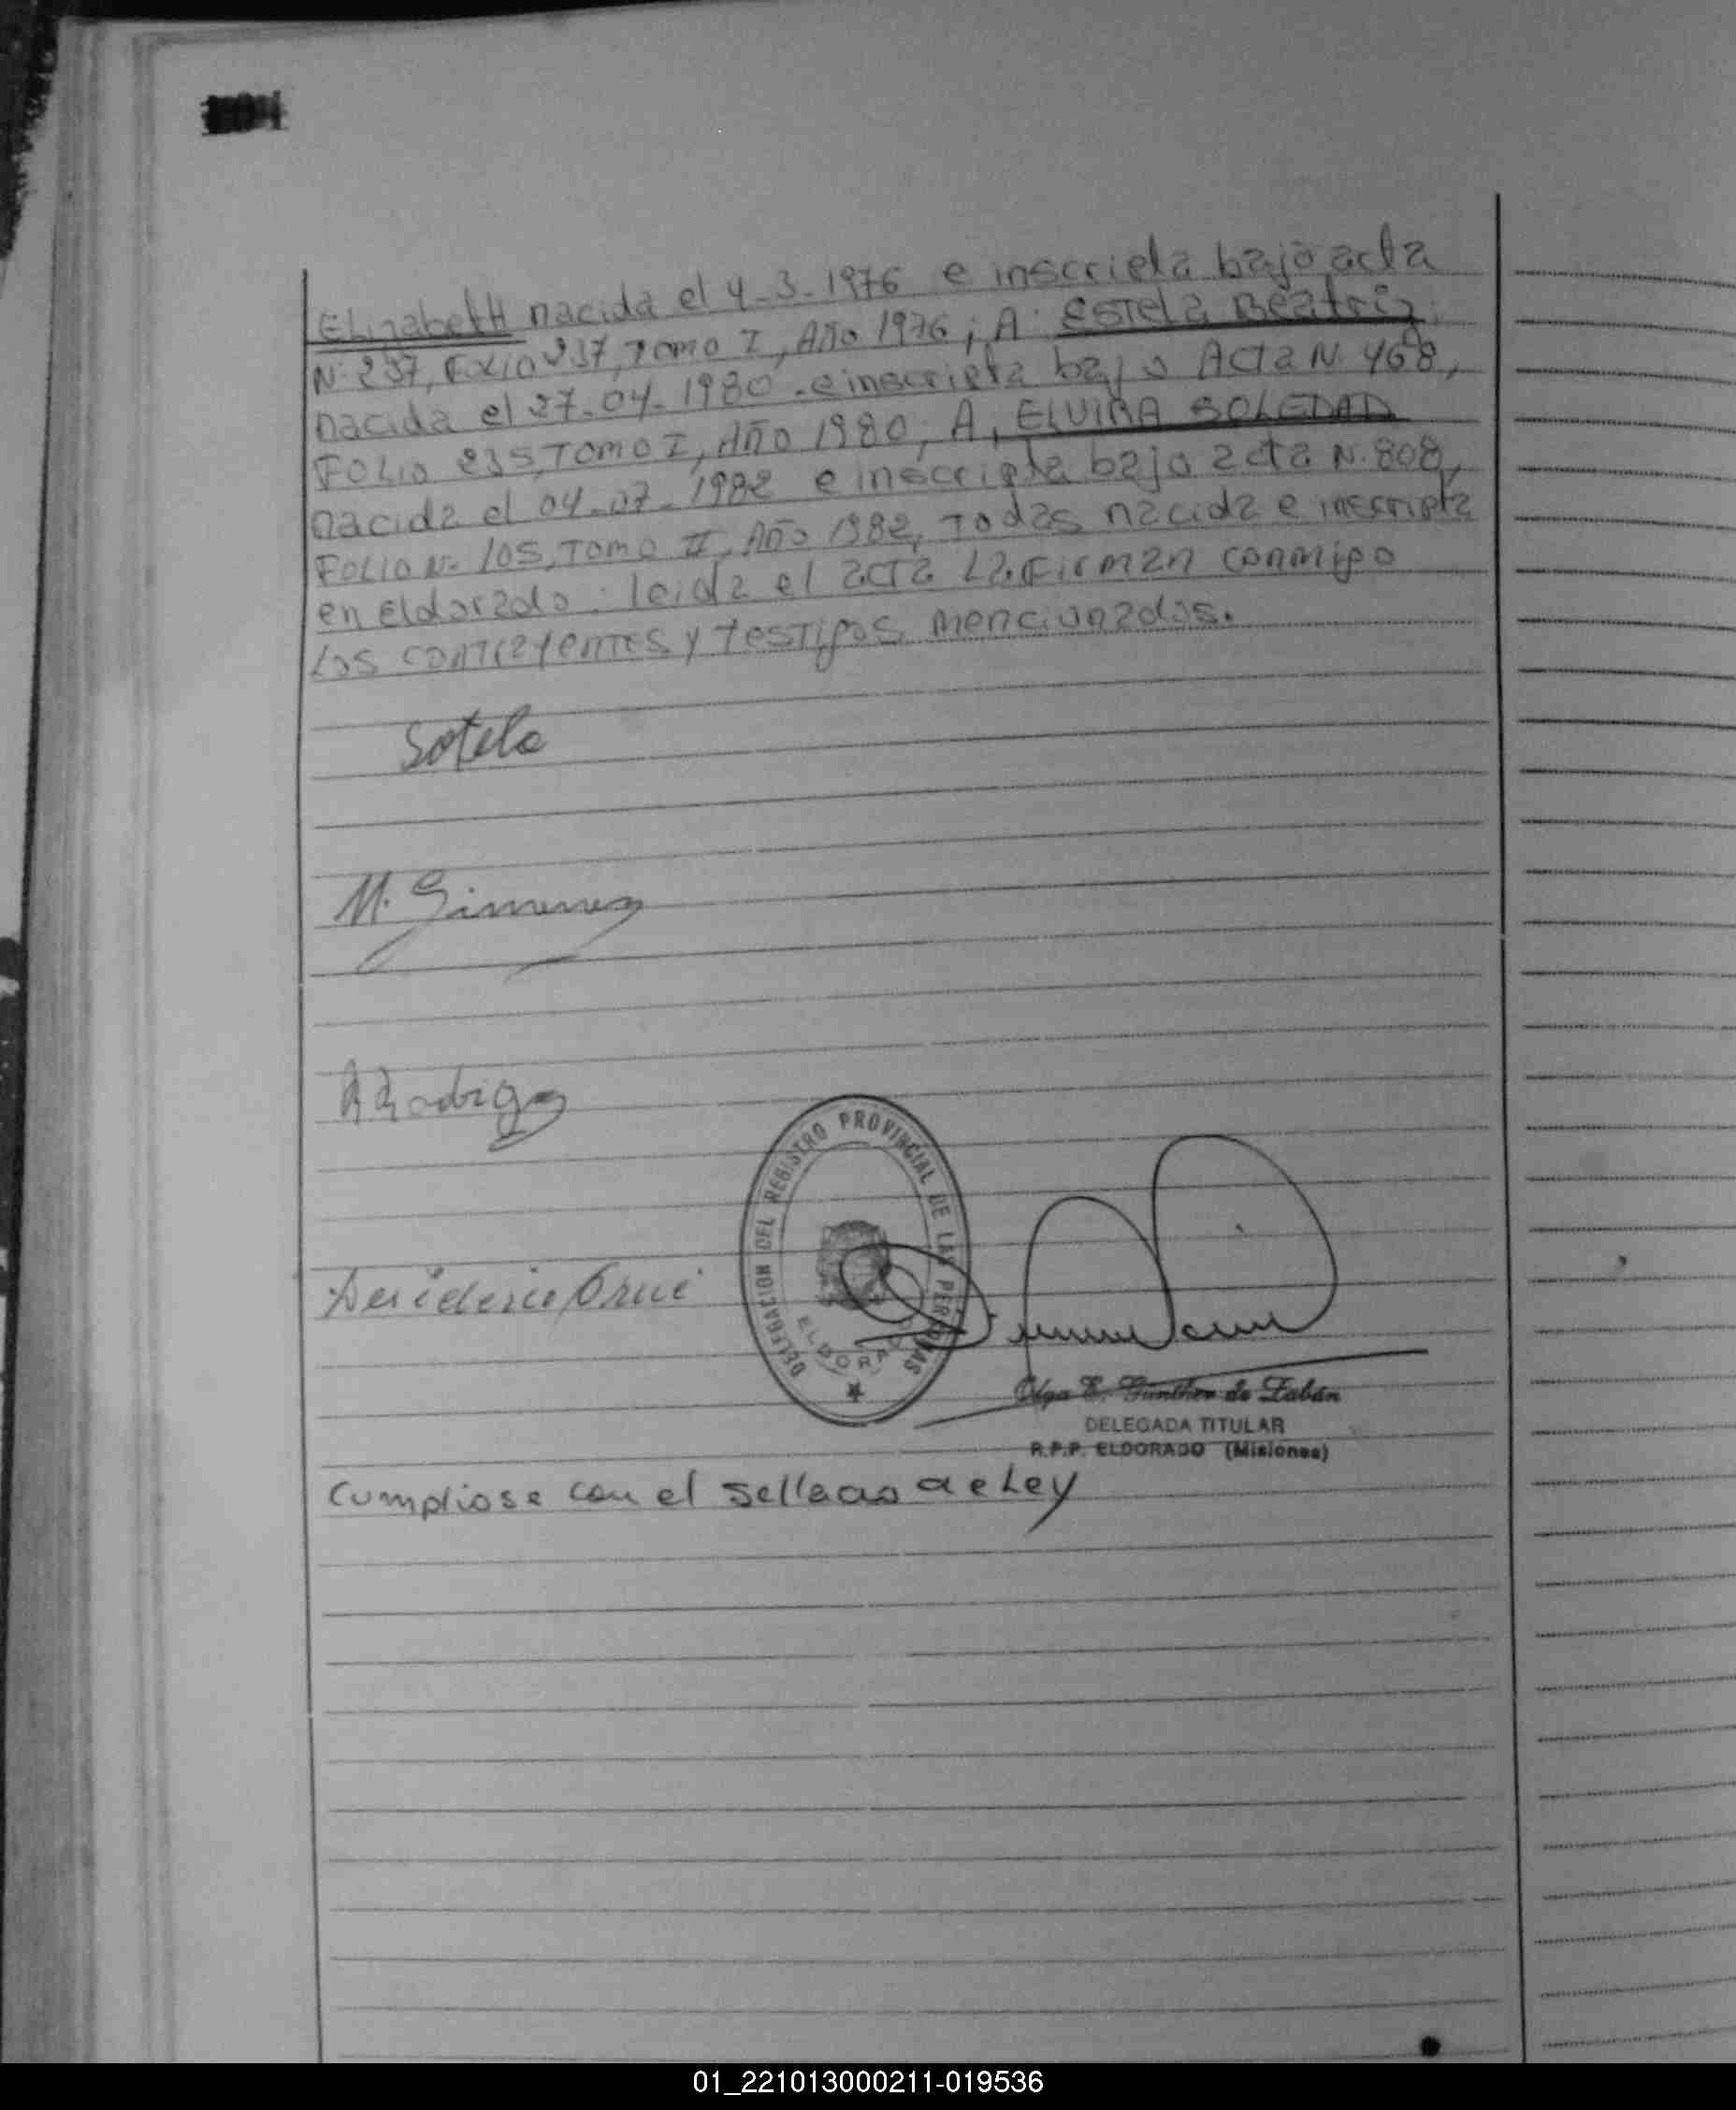 Elizabeth nacida el 4-3-1976 e inscripta bajo acta
N. 237, Folio 237, Tomo I, Año 1976; A: Estela Beatriz
nacida el 27-04-1980 e inscripta bajo Acta N. 468,
Folio 235, Tomo I, Año 1980; A, ELVIRA SOLEDAD
nacida el 04-07-1982 e inscripta bajo acta N. 808,
Folio N- 105, Tomo II, Año 1982, Todas nacida e inscripta
en Eldorado: leida el acta La Firman conmigo
los contrayentes y testigos mencionados.
Sotelo
M. Gimenez
DELEGACION DEL REGISTRO PROVINCIAL DE LAS PERSONAS
ELDORADO
Olga E. Günther de Zabán
DELEGADA TITULAR
R.P.P. ELDORADO (Misiones)
Cumpliose con el sellado de Ley
01_221013000211-019536